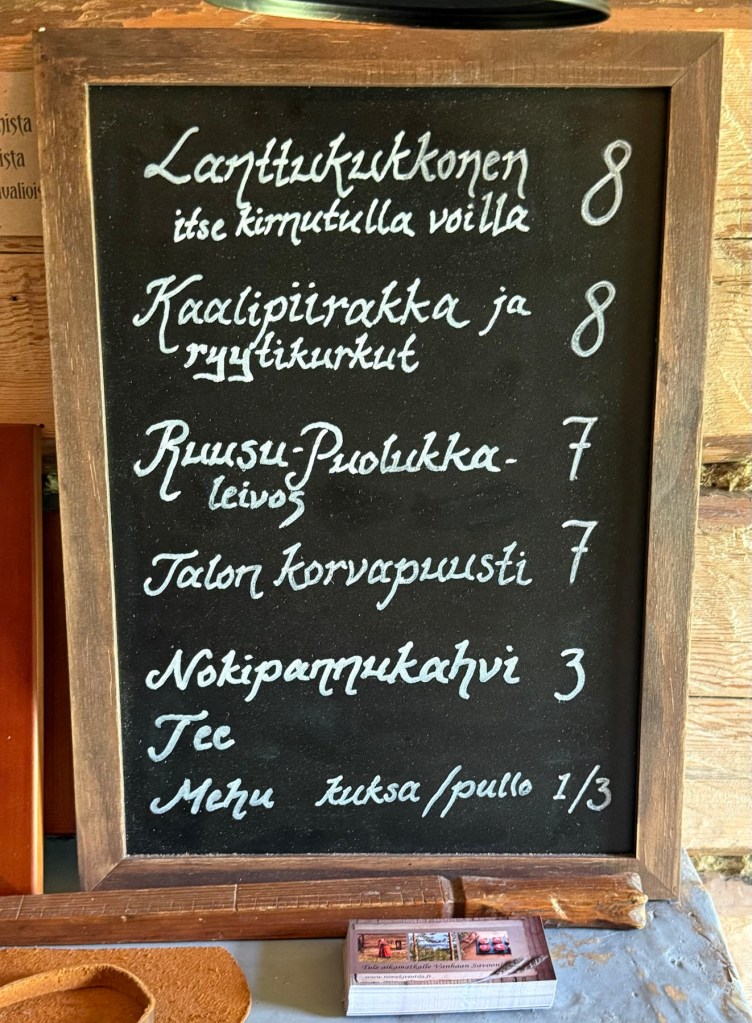 Lanttukukkonen 8
itse kirnutulla voilla
Kaalipiirakka ja 8
ryytikurkut
Ruusu-Puolukka- 7
leivos
Talon korvapuusti 7
Nokipannukahvi 3
Tee
Mehu kuksa/pullo 1/3
Tule aikamatkalle Vanhaan Savoon!